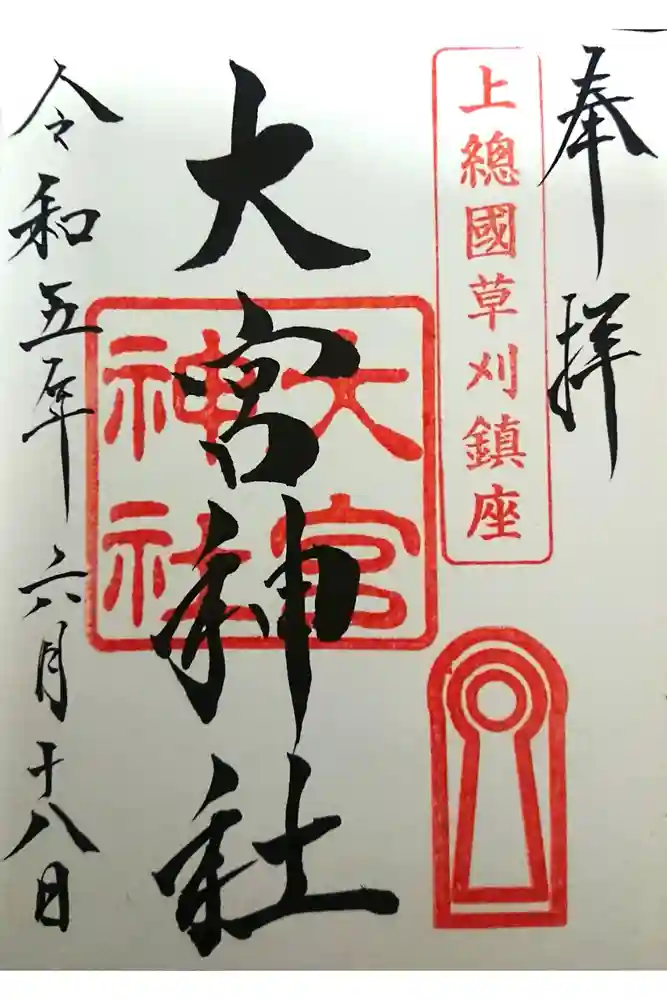 奉拝
上總國草刈鎮座
大宮神社
大宮
神社
令和五年六月十八日